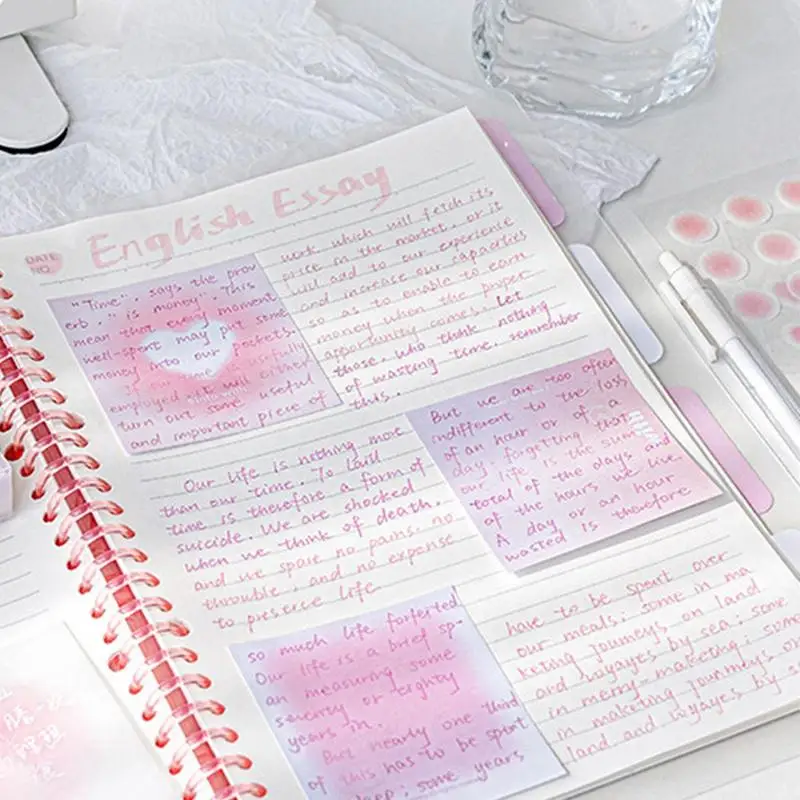 DATE
NO.
English Essay
"Time", says the prov
erb, "is money". This
mean that every moment
well-spent may put some
money into our pockets.
our time usefully
employed it will either
turn out some useful
and important piece of
work which will fetch its
price in the market, or it
will add to our experience
and increase our capacities
so as to enable to earn
money when the proper
opportunity comes. Let
those, who think nothing
of wasting time, remember
this.
Our life is nothing more
than our time. To kill
time is therefore a form of
suicide. We are shocked
when we think of death,
and we spare no pains, no
throuble, and no expense
to preserve life
But we are too often
indifferent to the loss
of an hour or of a
day, forgetting that
our life is the sum
total of the days and
of the hours we live.
A day or an hour
wasted is therefore
so much life forfeited
Our life is a brief sp-
an measuring some
seventy or eighty
years in.
But nearly one third
of this has to be spent
some years
have to be spent over
our meals; some in ma
keting journeys on land
and voyayes by sea; some
in merry-maketing; some
in maketing journeys on
land and voyayes by se